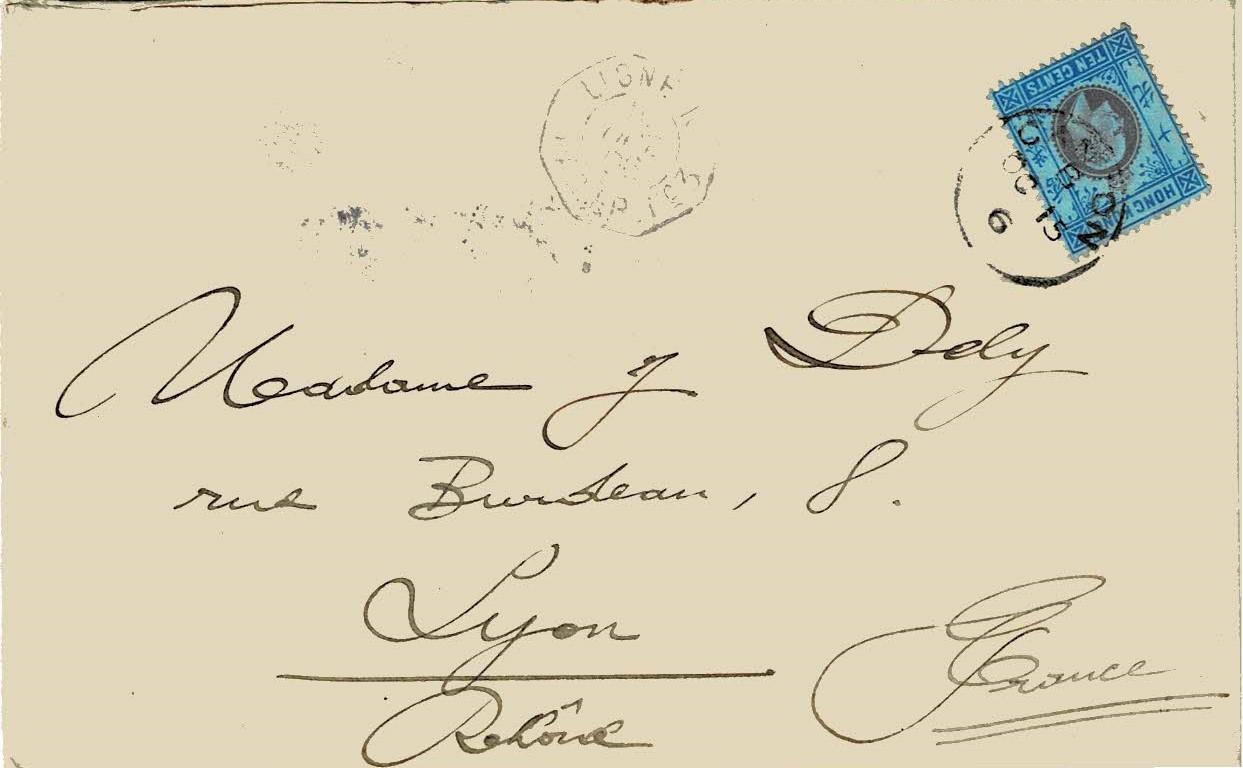 LIGNE
TEN CENTS
HONG KONG
B
OC 15
6
Madame J Dély
rue Burdeau, 8.
Lyon
Rhône
France